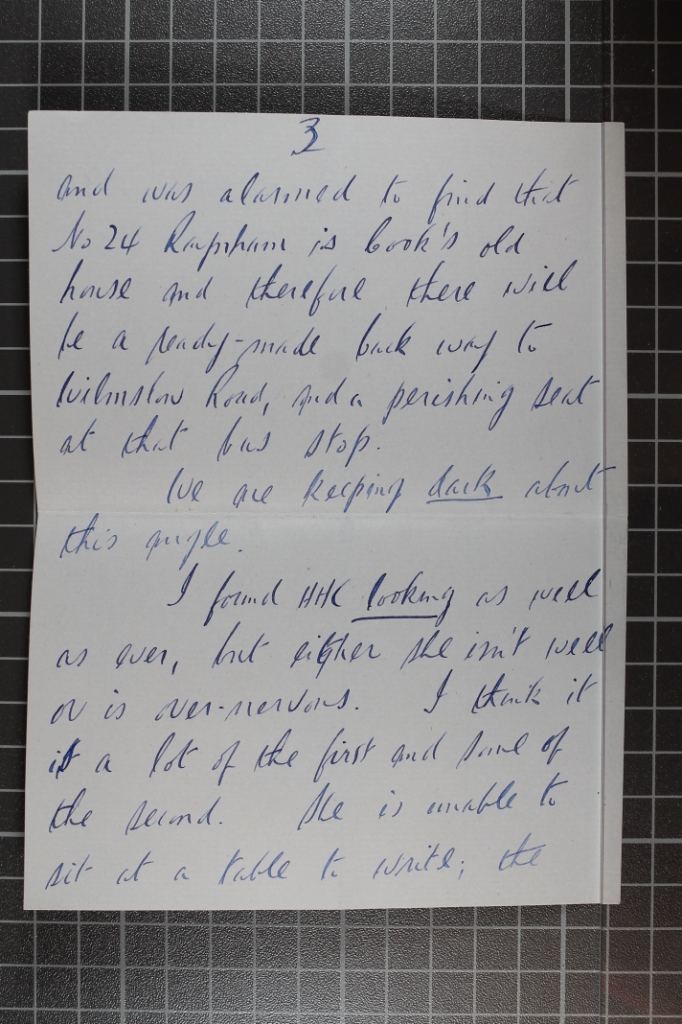 3
and was alarmed to find that
No 24 is Cook's old
house and therefore there will
be a ready-made back way to
Wilmslow Road, and a perishing seat
at that bus stop.
We are keeping dark about
this angle.
I found HHC looking as well
as ever, but either she isn't well
or is over-nervous. I think it
is a lot of the first and some of
the second. She is unable to
sit at a table to write; the